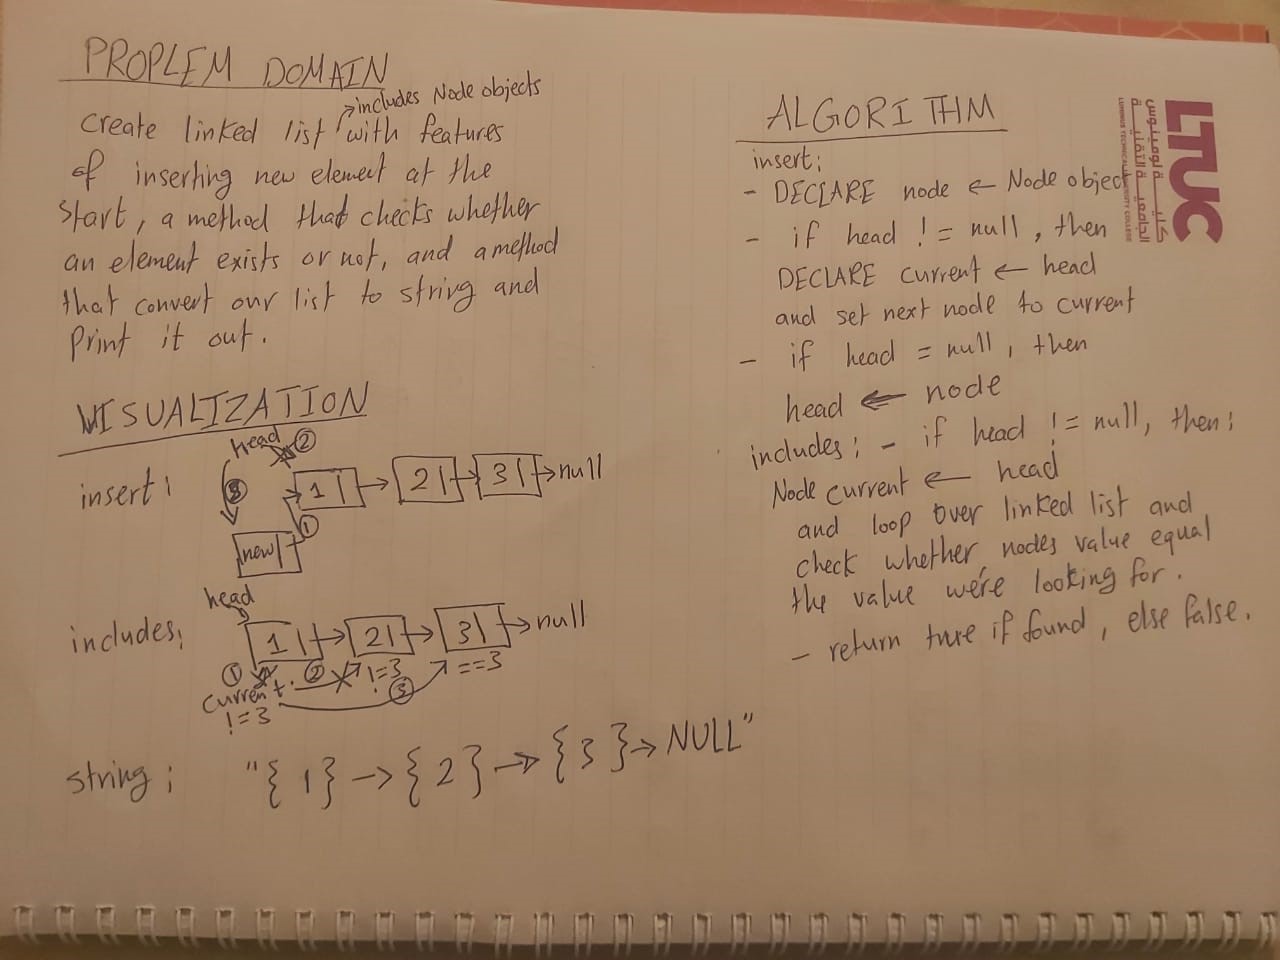 PROPLEM DOMAIN
includes Node objects
create linked list with features
of inserting new element at the
start, a method that checks whether
an element exists or not, and a method
that convert our list to string and
Print it out.
VISUALIZATION
head 2
insert:
3
1 2 3 null
1
new
head
includes:
1 2 3 null
1 2 !=3 ==3
current 3
!=3
string: "{ 1 } → { 2 } → { 3 } → NULL"
ALGORITHM
insert:
- DECLARE node ← Node object
- if head != null, then
DECLARE current ← head
and set next node to current
- if head = null, then
head ← node
includes: - if head != null, then:
Node current ← head
and loop over linked list and
check whether nodes value equal
the value we're looking for.
- return true if found, else false.
LTUC
كليـــة لومينوس
الجامعيـة التقنيـــة
LUMINUS TECHNICAL UNIVERSITY COLLEGE